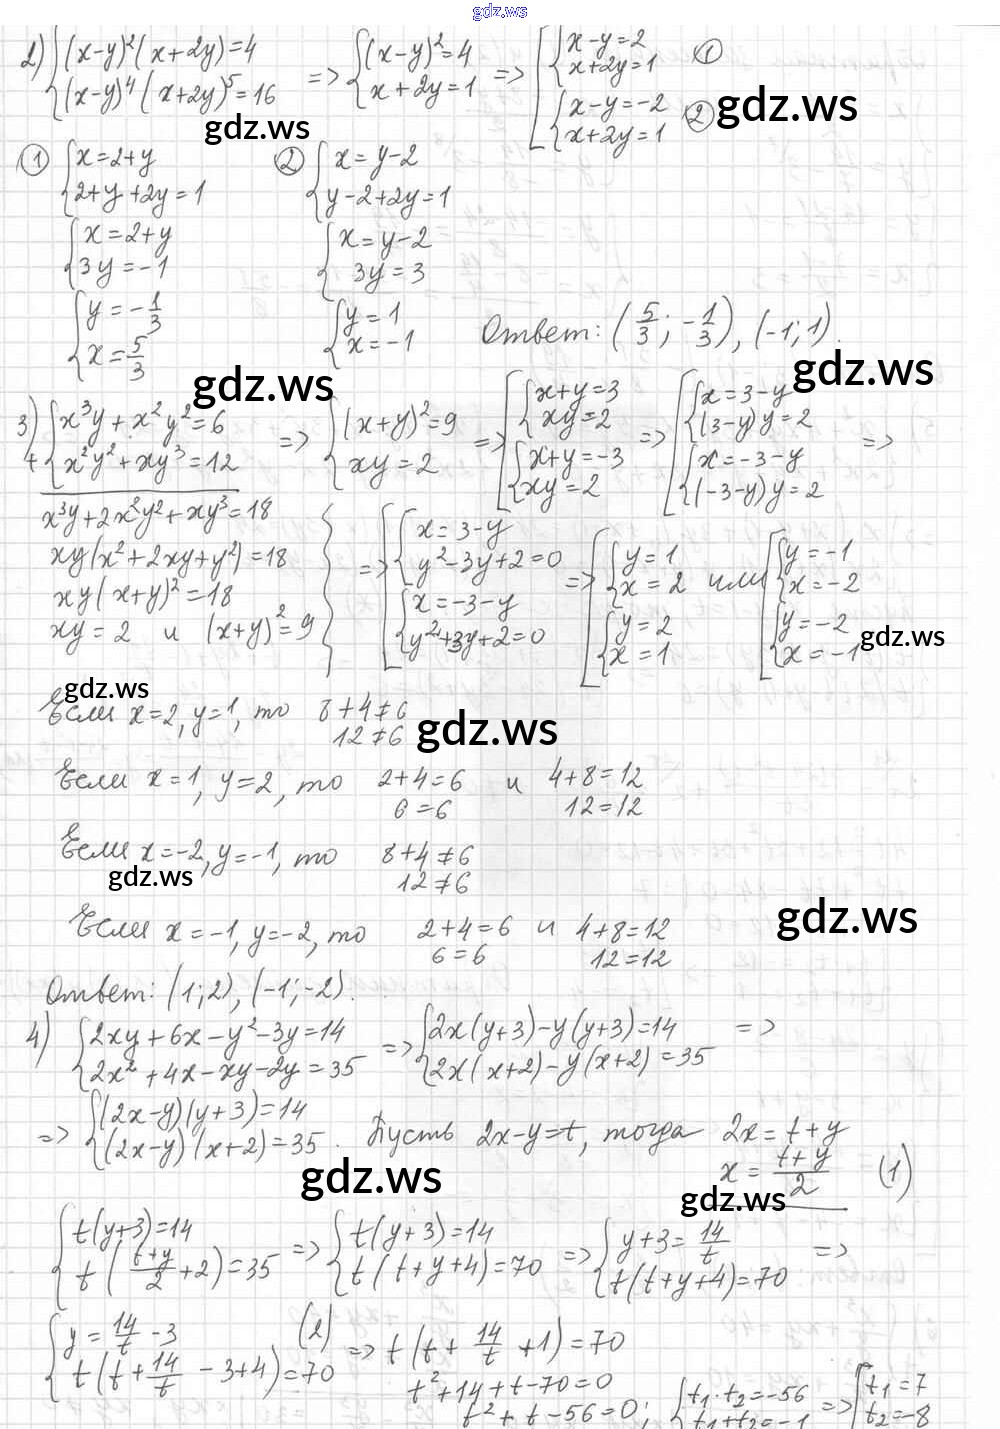 gdz.ws
2) {(x-y)²(x+2y)=4 {(x-y)⁴(x+2y)⁵=16 => {(x-y)²=4 {x+2y=1 => [{x-y=2 {x+2y=1 ① [{x-y=-2 {x+2y=1 ②
gdz.ws gdz.ws
① {x=2+y {2+y+2y=1 ② {x=y-2 {y-2+2y=1
{x=2+y {3y=-1 {x=y-2 {3y=3
{y=-1/3 {x=5/3 {y=1 {x=-1 Ответ: (5/3; -1/3), (-1; 1).
gdz.ws gdz.ws
3) + {x³y+x²y²=6 {x²y²+xy³=12 => {(x+y)²=9 {xy=2 => [{x+y=3 {xy=2 [{x+y=-3 {xy=2 => [{x=3-y {(3-y)y=2 [{x=-3-y {(-3-y)y=2 =>
x³y+2x²y²+xy³=18
xy(x²+2xy+y²)=18
xy(x+y)²=18
xy=2 и (x+y)²=9
=> [{x=3-y {y²-3y+2=0 [{x=-3-y {y²+3y+2=0 => [{y=1 {x=2 [{y=2 {x=1 или [{y=-1 {x=-2 [{y=-2 {x=-1
gdz.ws
gdz.ws
Если x=2, y=1, то 8+4≠6
12≠6
gdz.ws
Если x=1, y=2, то 2+4=6 и 4+8=12
6=6 12=12
Если x=-2, y=-1, то 8+4≠6
12≠6
gdz.ws
gdz.ws
Если x=-1, y=-2, то 2+4=6 и 4+8=12
6=6 12=12
Ответ: (1; 2), (-1; -2).
4) {2xy+6x-y²-3y=14 {2x²+4x-xy-2y=35 => {2x(y+3)-y(y+3)=14 {2x(x+2)-y(x+2)=35 =>
=> {(2x-y)(y+3)=14 {(2x-y)(x+2)=35. Пусть 2x-y=t, тогда 2x=t+y
x=(t+y)/2 (1)
gdz.ws gdz.ws
{t(y+3)=14 {t((t+y)/2+2)=35 => {t(y+3)=14 {t(t+y+4)=70 => {y+3=14/t {t(t+y+4)=70 =>
{y=14/t-3 (2) {t(t+14/t-3+4)=70 => t(t+14/t+1)=70
t²+14+t-70=0
t²+t-56=0; {t₁·t₂=-56 {t₁+t₂=-1 => [t₁=7 [t₂=-8